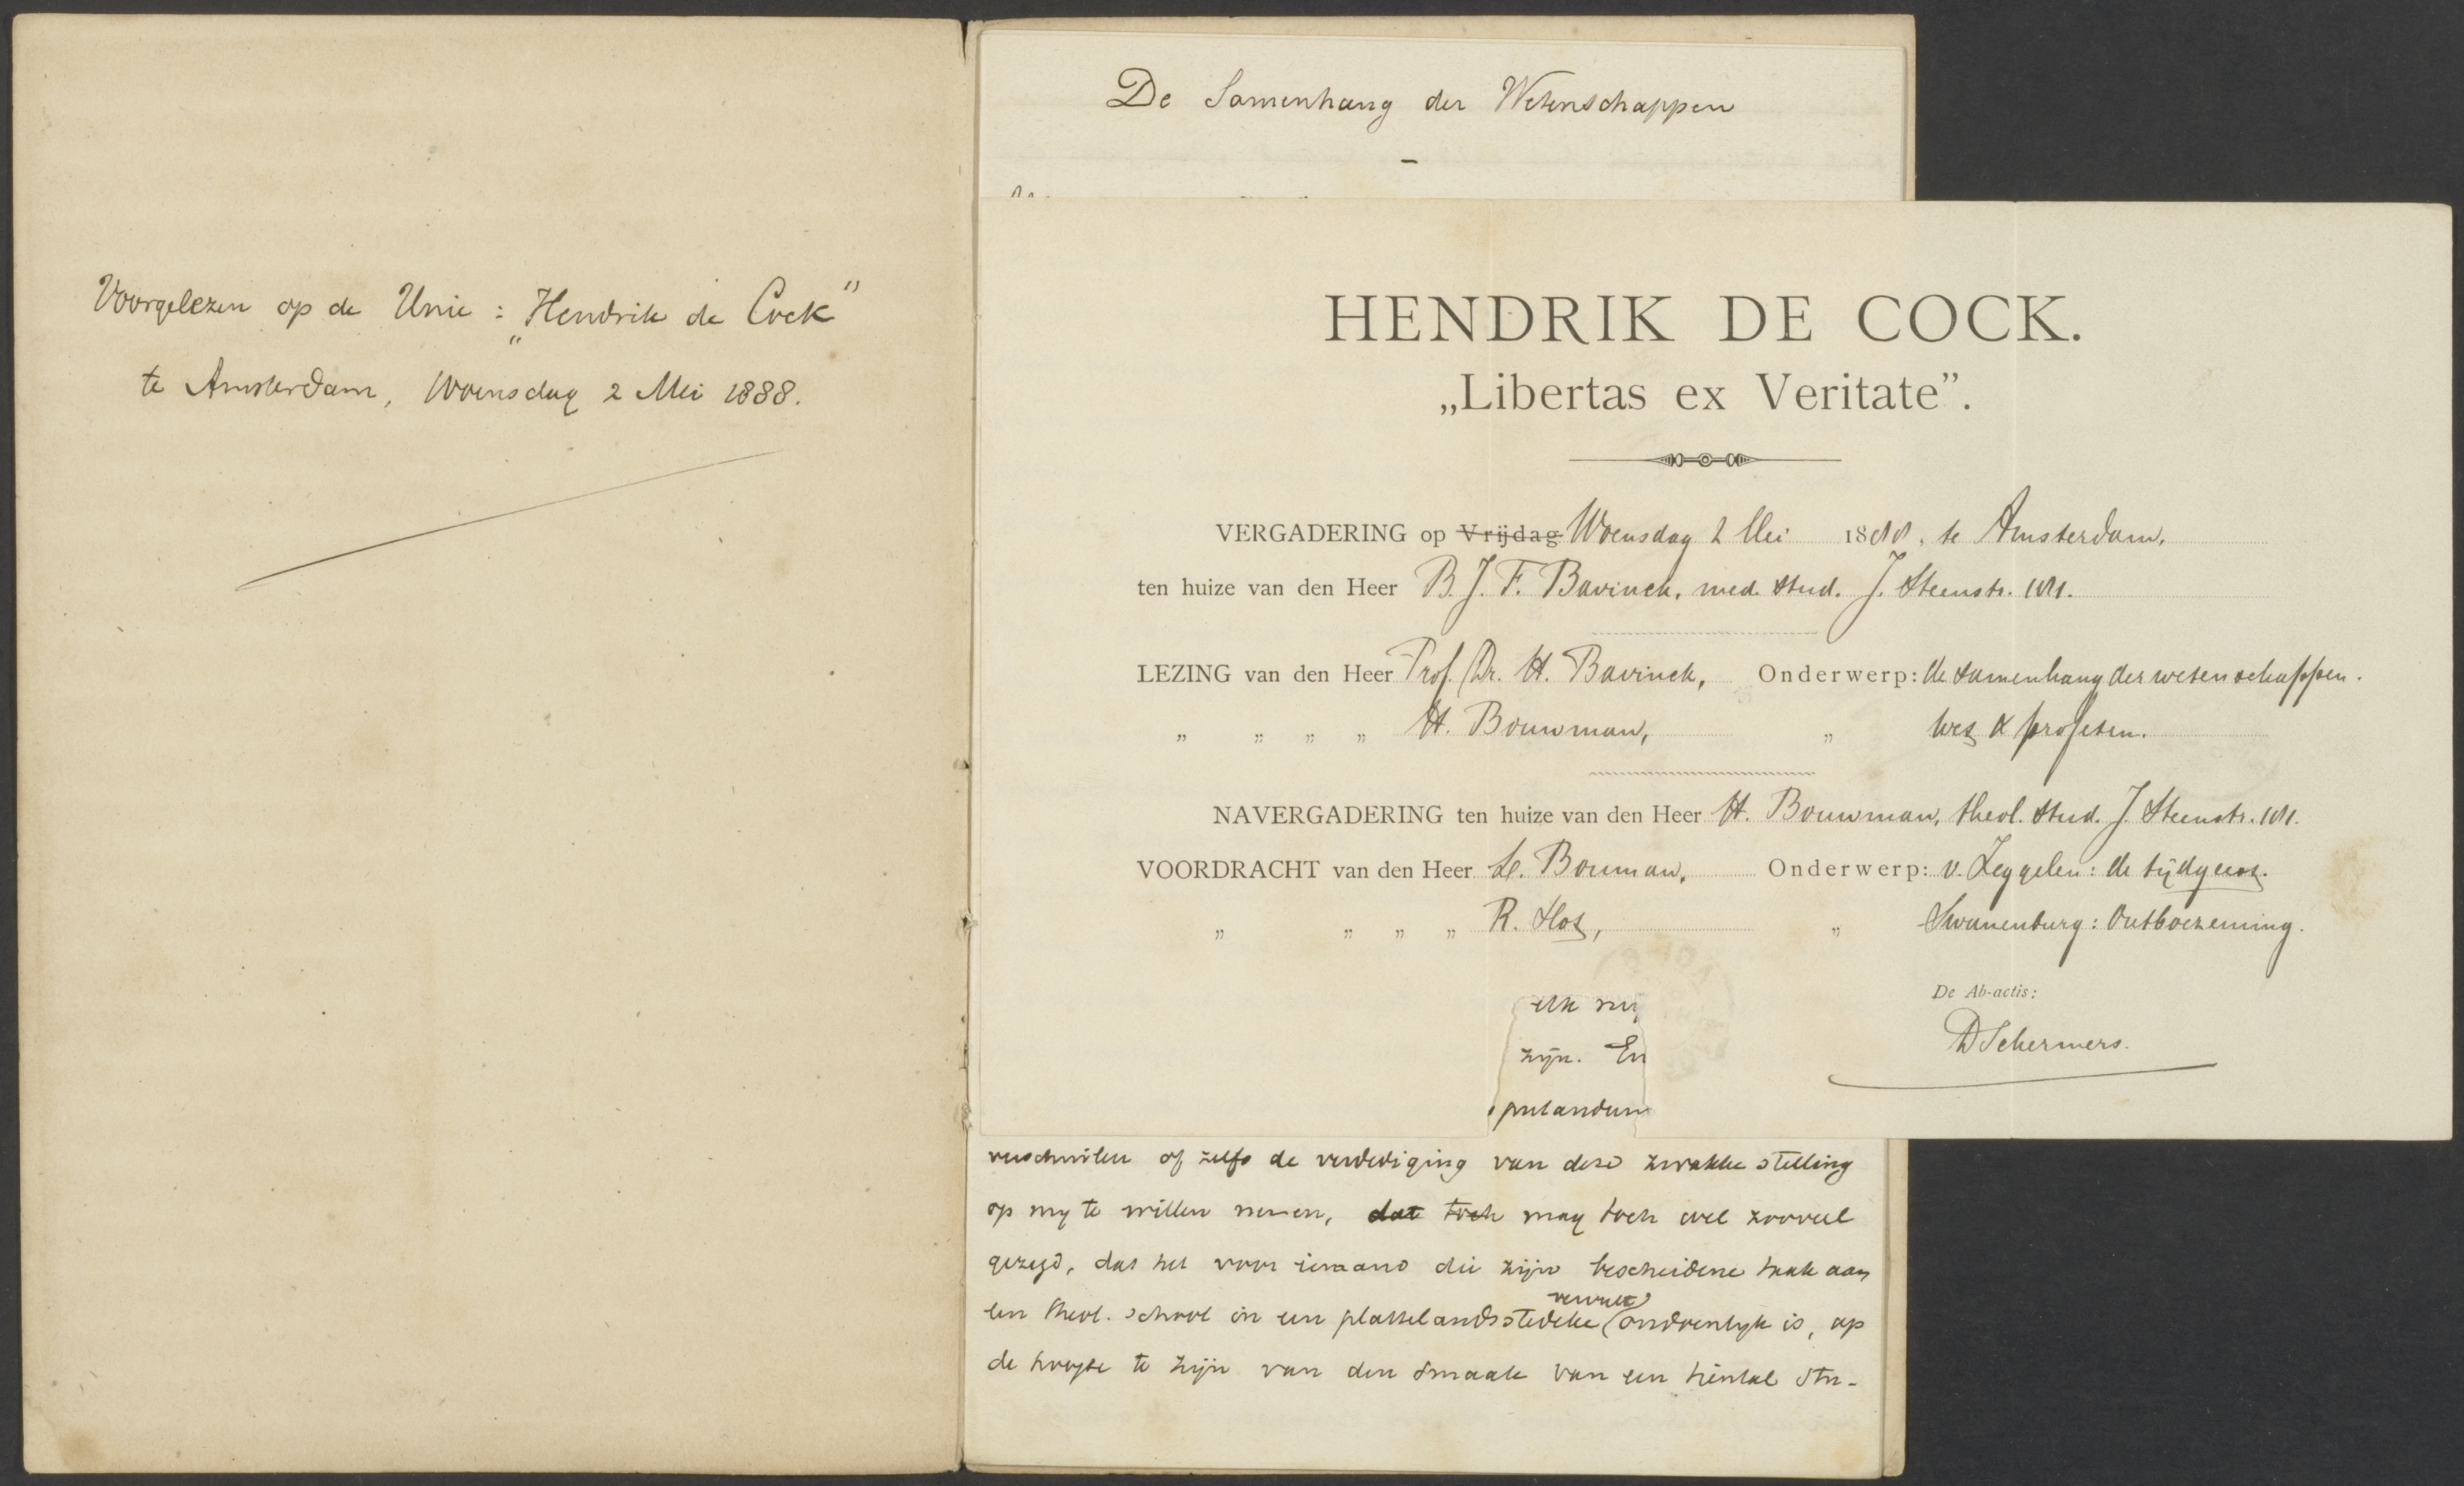 Voorgelezen op de Unie: „Hendrik de Cock"
te Amsterdam, Woensdag 2 Mei 1888.
De Samenhang der Wetenschappen
HENDRIK DE COCK.
„Libertas ex Veritate”.
VERGADERING op Vrijdag Woensdag 2 Mei 1888, te Amsterdam,
ten huize van den Heer B. J. F. Bavinck, med. stud. J. Steenstr. 181.
LEZING van den Heer Prof. Dr. H. Bavinck, Onderwerp: de samenhang der wetenschappen.
„ „ „ „ H. Bouwman, „ wet & profeten.
NAVERGADERING ten huize van den Heer H. Bouwman, theol. stud. J. Steenstr. 181.
VOORDRACHT van den Heer L. Bouman, Onderwerp: v. Zeggelen: de tijdgeest.
„ „ „ „ R. Slot, „ Swanenburg: Ontboezeming.
De Ab-actis:
D Schermers.
zijn. En
putandum
verschuilen of zelfs de verdediging van deze zwakke stelling
op mij te willen nemen, dat toch mag toch wel zooveel
gezegd, dat het voor iemand die zijn bescheidene taak aan
een theol. school in een plattelandsstedeke vervult ondoenlijk is, op
de hoogte te zijn van den smaak van een tiental stu-